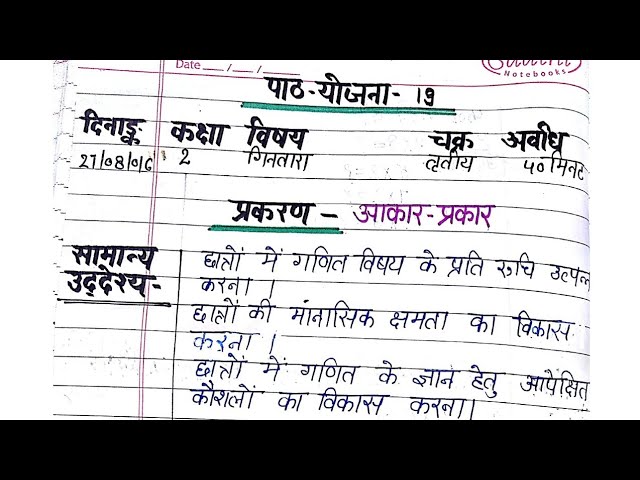 Notebooks
Date __/__/__
पाठ-योजना-19
दिनाङ्क कक्षा विषय चक्र अवधि
2 गिनतारा तृतीय ५० मिनट
प्रकरण – आकार-प्रकार
सामान्य उद्देश्य-
छात्रों में गणित विषय के प्रति रुचि उत्पन्न
करना।
छात्रों की मानसिक क्षमता का विकास
करना।
छात्रों में गणित के ज्ञान हेतु आपेक्षित
कौशलों का विकास करना।